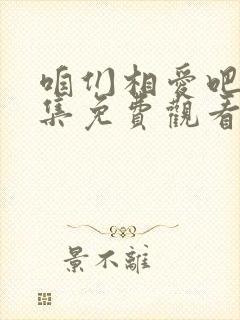 咱们相愛吧
集免費觀看
景不離